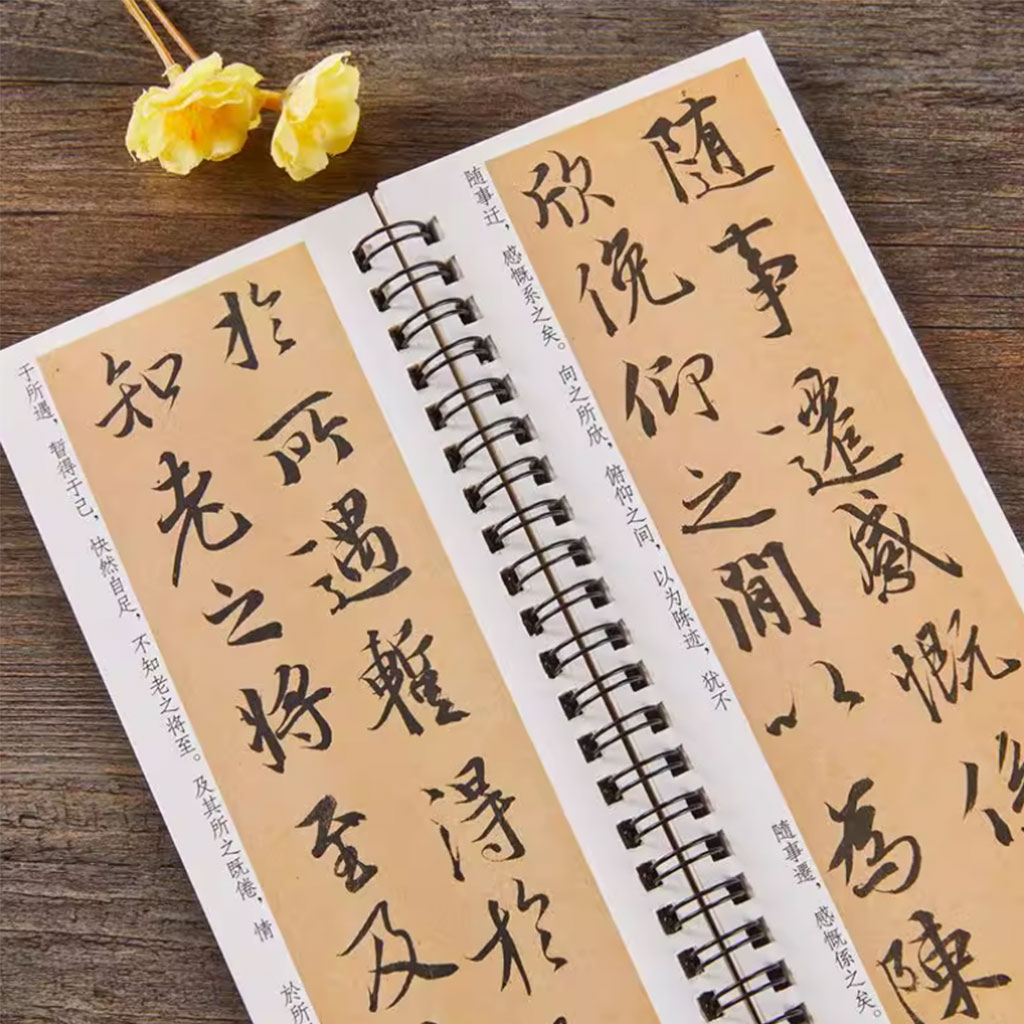 於所遇暫得於
知老之將至及
于所遇，暂得于己，快然自足，不知老之将至。及其所之既倦，情
於所
隨事遷感慨係
欣俛仰之閒以為陳
随事迁，感慨系之矣。向之所欣，俯仰之间，以为陈迹，犹不
隨事遷，感慨係之矣。